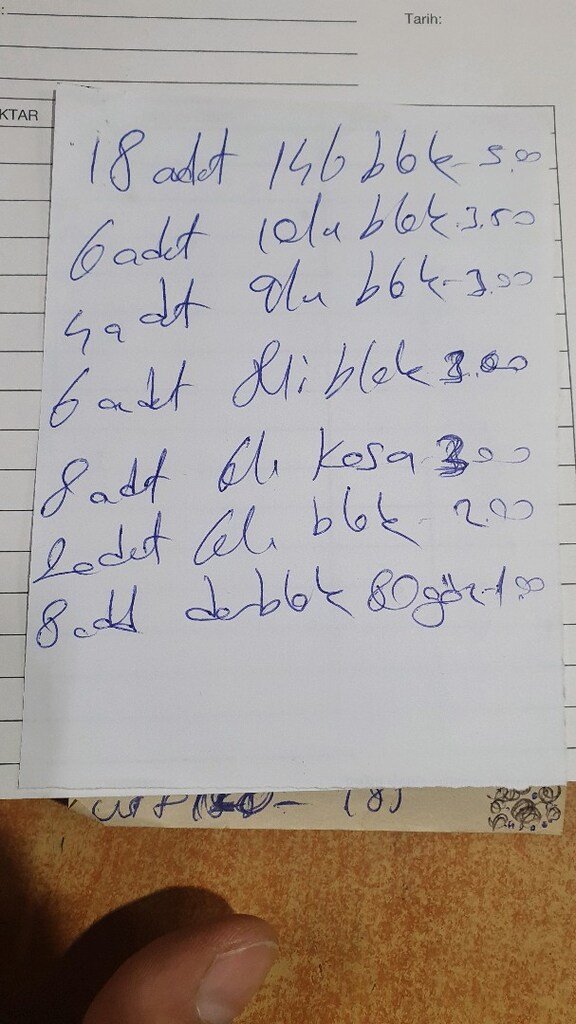 Tarih:
KTAR
18 adet 146 blok - 5.00
6 adet 10lu blok - 3.50
4 adet 9lu blok - 3.00
6 adet 8li blok 3.00
8 adet 6lı kasa 300
2 adet 6lı blok - 2.00
8 adet blok 80 - 1.00